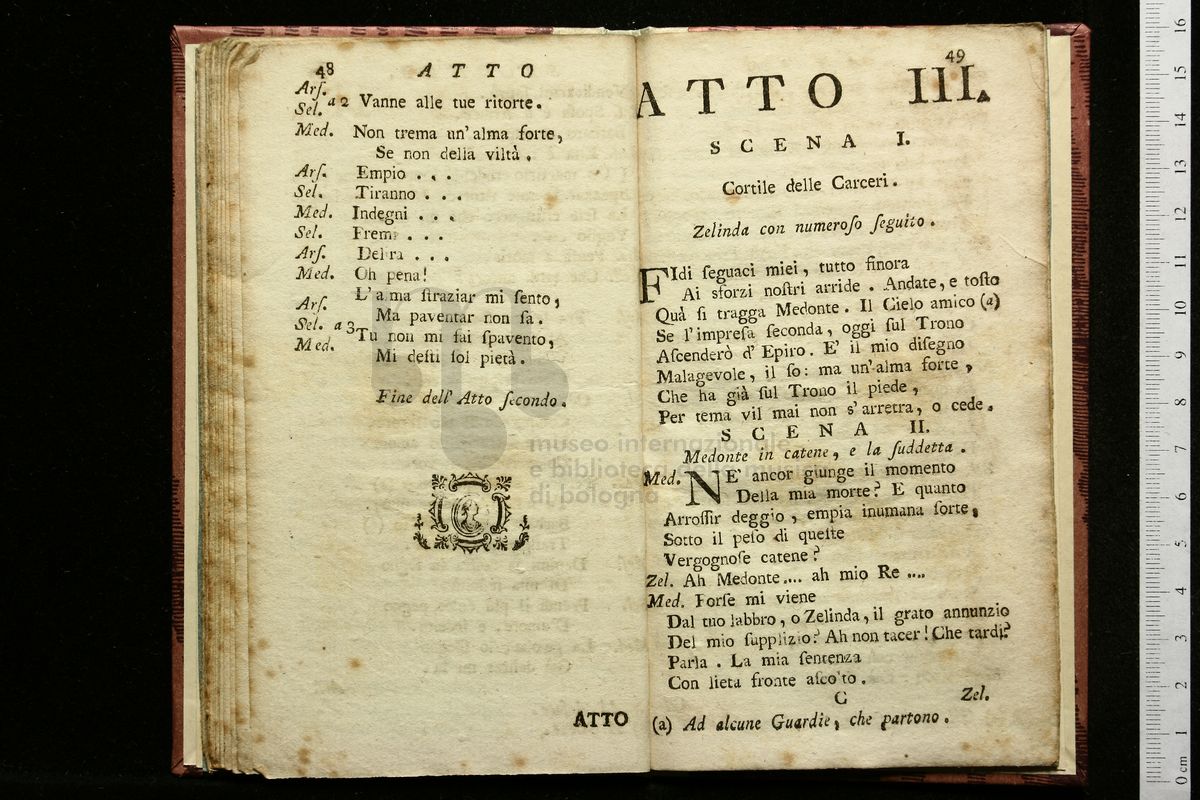 48 ATTO
Arſ.
Sel. a 2 Vanne alle tue ritorte.
Med. Non trema un' alma forte,
Se non della viltà.
Arſ. Empio . . .
Sel. Tiranno . . .
Med. Indegni . . .
Sel. Fremi . . .
Arſ. . . .
Med. Oh pena!
Arſ. L'alma ſtraziar mi ſento,
Ma paventar non ſa.
Sel. a 3 Tu non mi fai ſpavento,
Med. Mi deſti ſol pietà.
Fine dell' Atto ſecondo.
ATTO
49
ATTO III.
SCENA I.
Cortile delle Carceri.
Zelinda con numeroſo ſeguito.
FIdi ſeguaci miei, tutto finora
Ai sforzi noſtri arride. Andate, e toſto
Quà ſi tragga Medonte. Il Cielo amico (a)
Se l'impreſa ſeconda, oggi ſul Trono
Aſcenderò d' Epiro. E' il mio diſegno
Malagevole, il ſo: ma un' alma forte,
Che ha già ſul Trono il piede,
Per tema vil mai non s' arretra, o cede.
SCENA II.
Medonte in catene, e la ſuddetta.
Med. NE' ancor giunge il momento
Della mia morte? E quanto
Arroſſir deggio, empia inumana ſorte,
Sotto il peſo di queſte
Vergognoſe catene?
Zel. Ah Medonte.... ah mio Re ....
Med. Forſe mi viene
Dal tuo labbro, o Zelinda, il grato annunzio
Del mio ſupplizio? Ah non tacer! Che tardi?
Parla. La mia ſentenza
Con lieta fronte aſcolto.
C Zel.
(a) Ad alcune Guardie, che partono.
museo internazionale
e biblioteca della musica
di bologna
0 cm 1 2 3 4 5 6 7 8 9 10 11 12 13 14 15 16